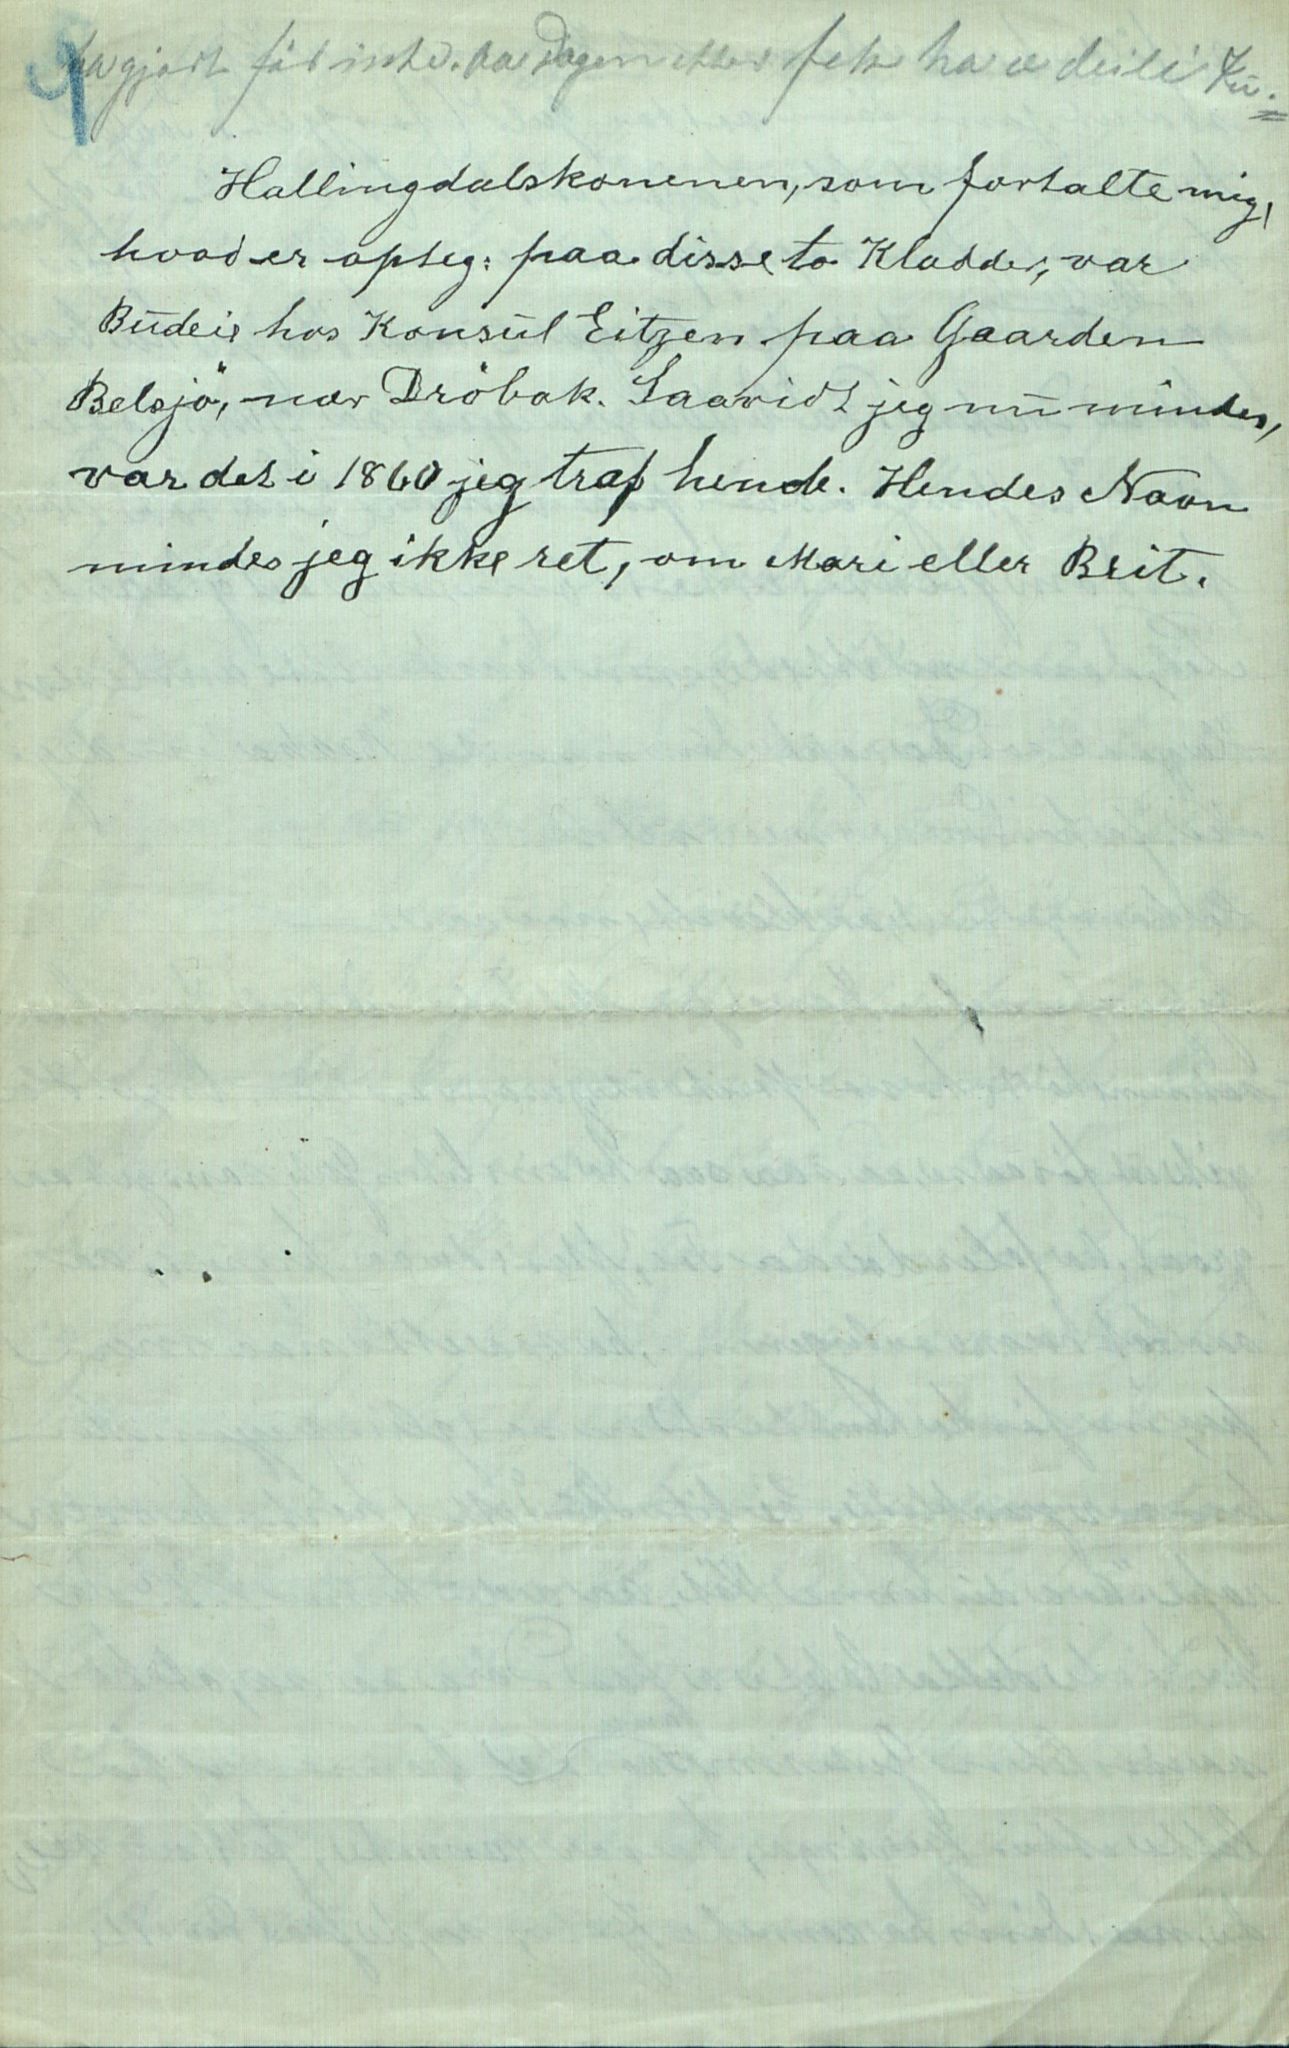 gjort for  da Dagen etter fek ha e deili Kū.
Hallingdalskonenen, som fortalte mig,
hvad er opteg: paa disse to Kladder, var
Būdeie hos Konsūl Eitzen paa Gaarden
Belsjö, nær Dröbak. Saavidt jeg nū mindes,
var det i 1860 jeg traf hende. Hendes Navn
mindes jeg ikke ret, om Mari eller Brit.